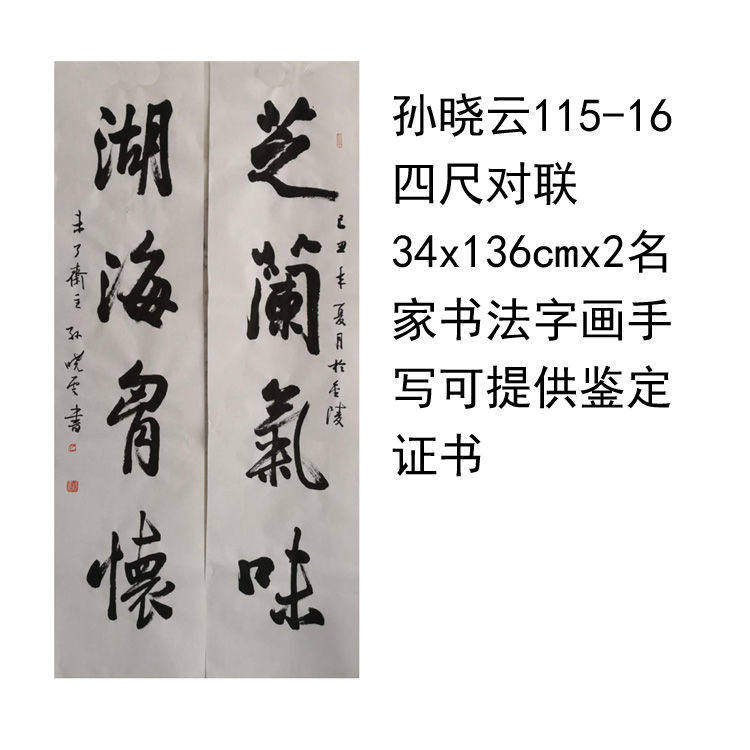 芝蘭氣味
己丑年夏月於金陵
湖海胷懷
未了齋主孙晓云書
孙晓云115-16
四尺对联
34x136cmx2名
家书法字画手
写可提供鉴定
证书